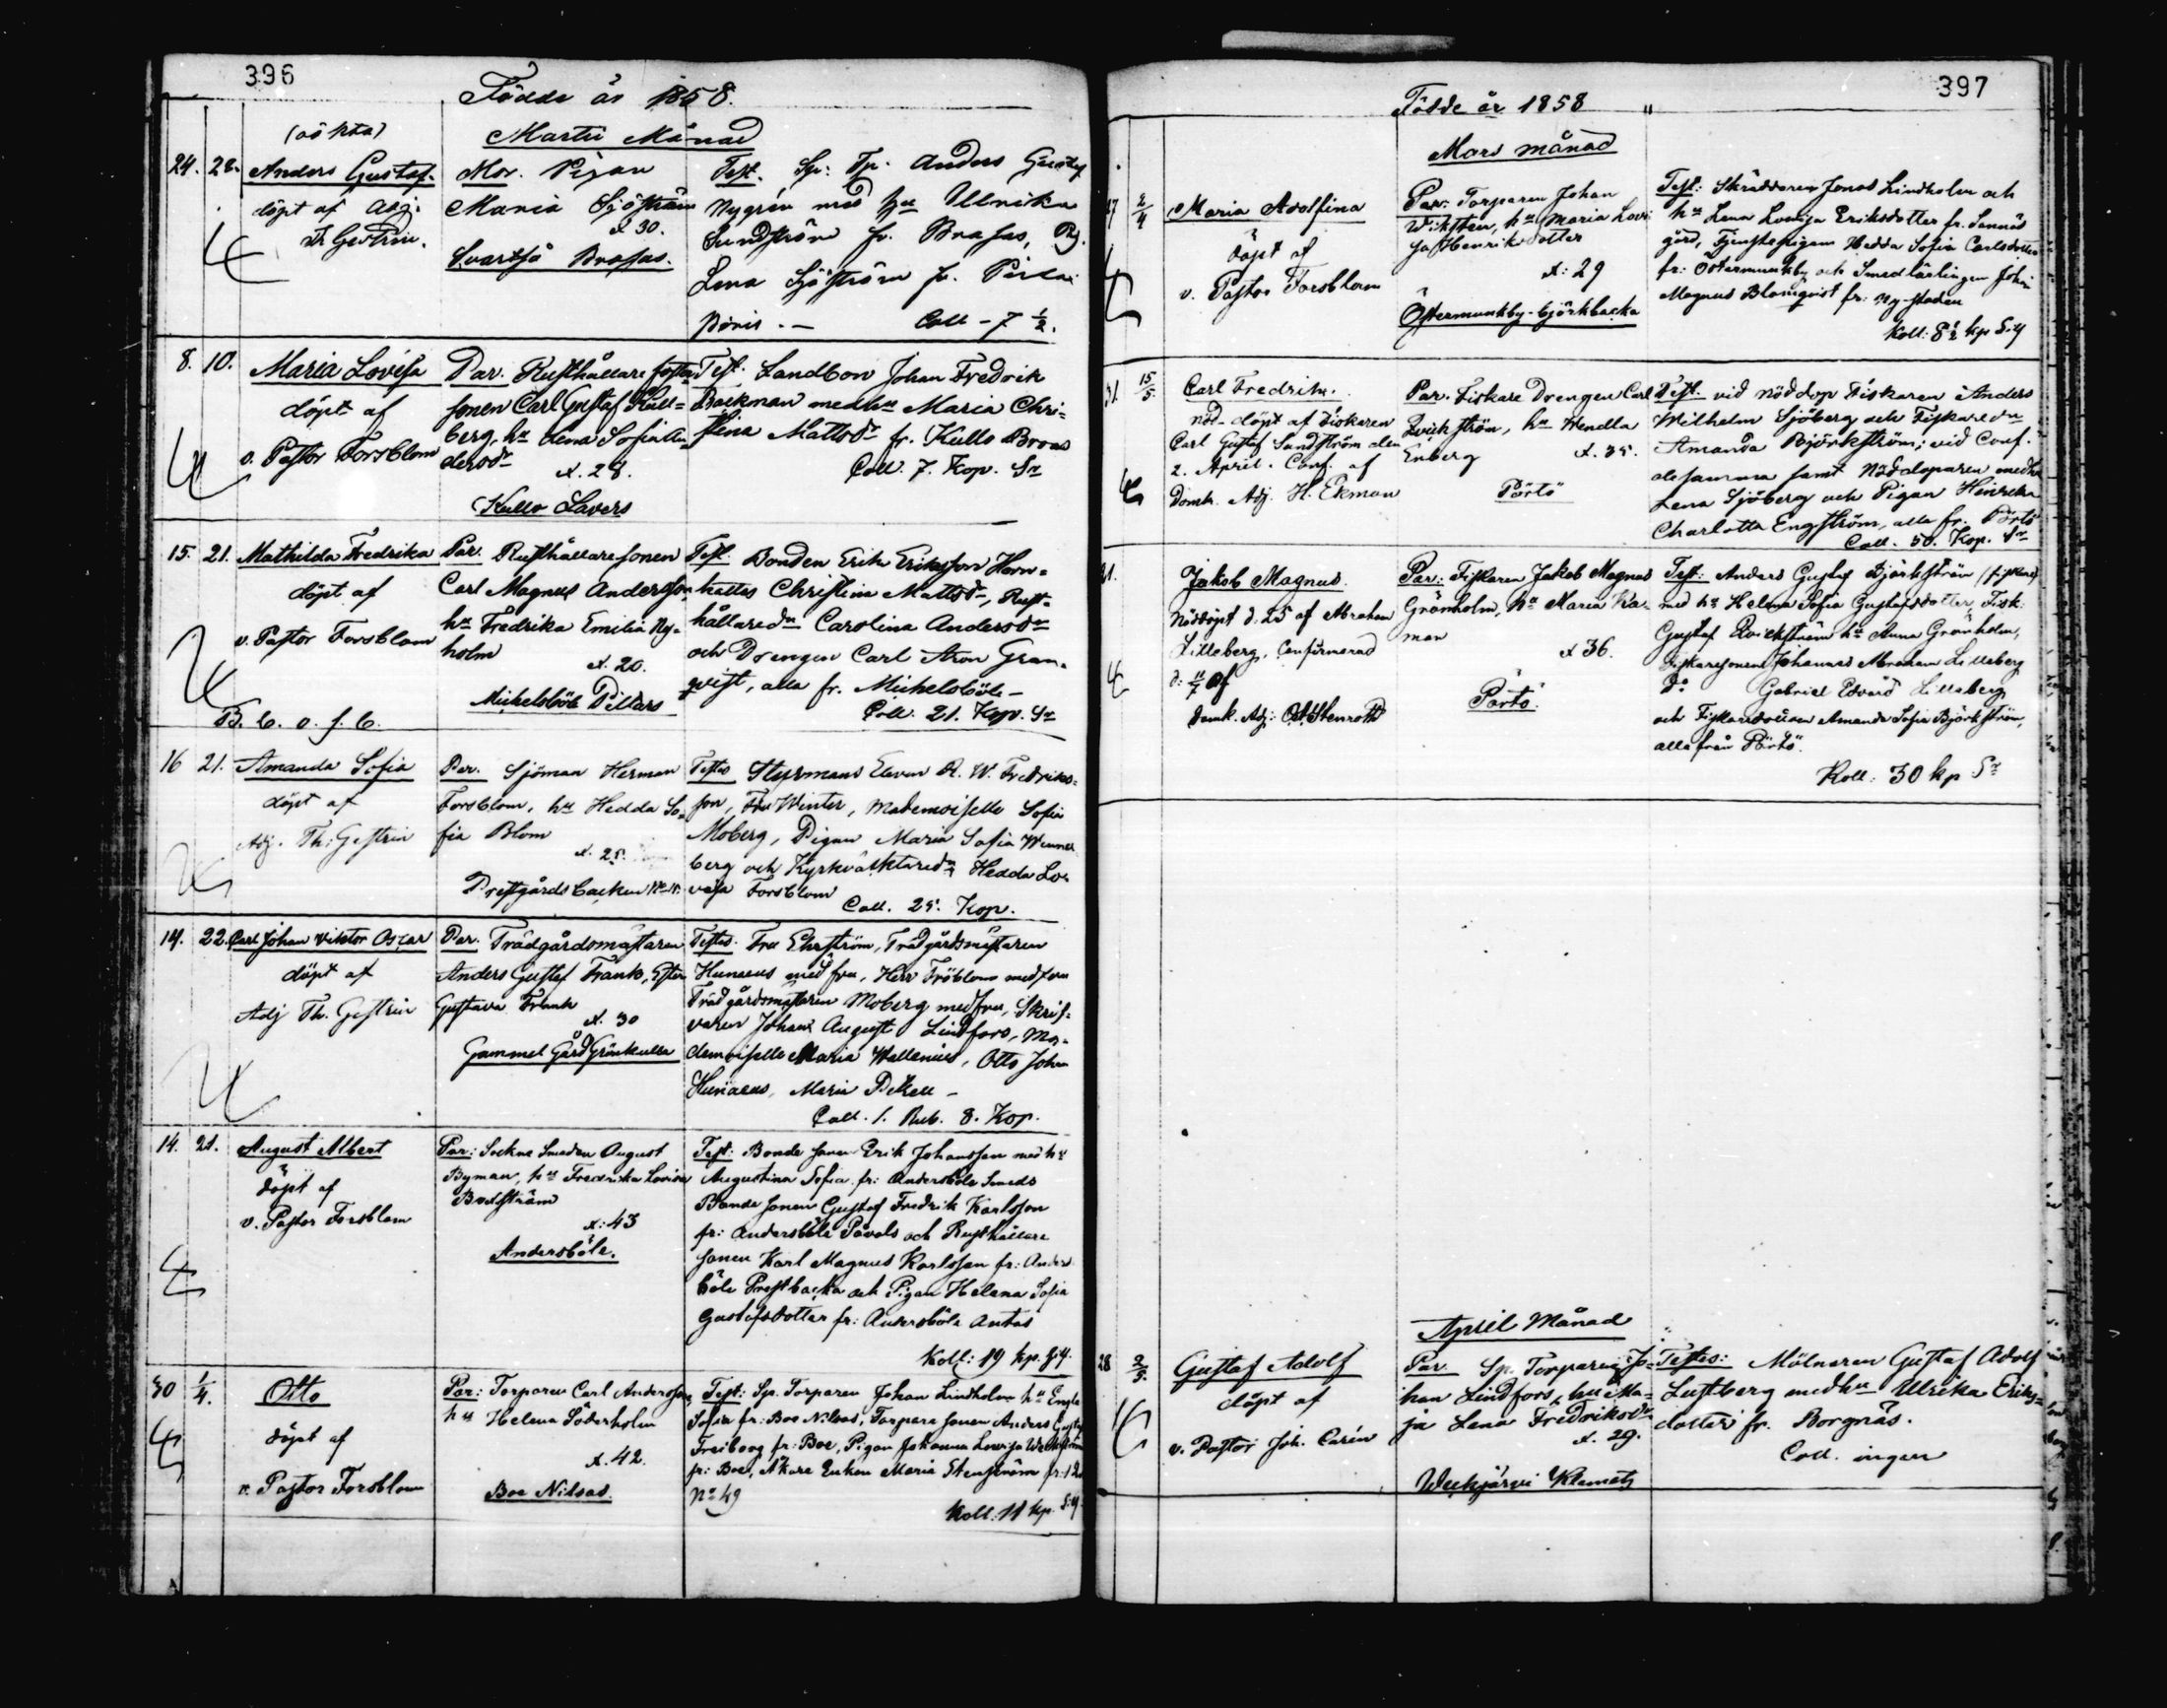 396
Födde år 1858.
(oäkta)
Martii Månad
24. 28. Anders Gustaf.
döpt af Adj.
Th Gestrin.
Mor. Pigan
Maria Sjöström
x 30.
Svartså Brasas.
Test. Sp: Tp. Anders Gustaf
Nygrén med hu Ullrika
Sundström fr. Brasas, Pig.
Lena Sjöström fr.
Coll - 7 ½.
8. 10. Maria Lovisa
döpt af
v. Pastor Forsblom
Par. Rusthållare foster
sonen Carl Gustaf Kull=
berg, hu Lena Sofia An
dersdr
x. 28.
Kullo Lavers
Test. Landbon Johan Fredrik
Backman med hu Maria Chri=
stina Mattsdr fr. Kullo Broas
Coll. 7. Kop. Sr
15. 21. Mathilda Fredrika
döpt af
v. Pastor Forsblom
B. C. o. f. C.
Par. Rusthållaresonen
Carl Magnus Andersson,
hu Fredrika Emilia Ny=
holm
x. 20.
Michelsböle Pillars
Test. Bonden Erik Eriksson Horn=
hattas Christina Mattsdr, Rust=
hållaredn Carolina Andersdr
och Drengen Carl Aron Gran=
qvist, alla fr. Michelsböle -
Coll. 21. Kop. Sr
16 21. Amanda Sofia
döpt af
Adj. Th: Gestrin
Par. Sjöman Herman
Forsblom, hu Hedda So=
fia Blom
x. 25.
Prestgårdsbacken
Testes Styrmans Eleven A. W. Fredriks=
son, Fru Winter, Mademoiselle Sofia
Moberg, Pigan Maria Sofia Wenner
berg och Kyrkväktaredn Hedda Lo=
visa Forsblom
Coll. 25. Kop.
14. 22. Carl Johan Viktor Oscar
döpt af
Adj Th. Gestrin
Par. Trädgårdsmästaren
Anders Gustaf Frank, Ester
Gustava Frank
x. 30
Gammel Gård Grönkulla
Testes. Fru Ehrström, Trädgårdsmästaren
Hunaeus med fru, Herr Fröblom med fru
Trädgårdsmästaren Moberg med fru, Skrif=
varen Johan August Lindfors, Ma=
demoiselle Maria Wallenius, Otto Johan
Hunaeus, Maria
Coll. 1. Rub. 8. Kop.
14. 21. August Albert
döpt af
v. Pastor Forsblom
Par: Sockne Smeden August
Byman, hu Fredrika Lovisa
Bodström
x: 43
Andersböle.
Test: Bonde sonen Erik Johansson med hu
Augustina Sofia fr: Andersböle Smeds
Bonde sonen Gustaf Fredrik Karlsson
fr: Andersböle Påvals och Rusthållare
sonen Karl Magnus Karlsson fr: Anders
böle Prestbacka och Pigan Helena Sofia
Gustafsdotter fr: Andersböle Antas
Koll: 19 kp. Sr
30 1/4. Otto
döpt af
v. Pastor Forsblom
Par: Torparen Carl Andersson,
hu Helena Söderholm
x. 42.
Boe Nilsas.
Test: Sp. Torparen Johan Lindholm hu Engla
Sofia fr: Boe Nilsas, Torpare sonen Anders Gustaf
Freiborg fr: Boe, Pigan Johanna Lovisa
fr: Boe, Åkare Enkan Maria Stenström
No 49
Koll: 11 kp. Sr
397
Födde år 1858
Mars månad
27 2/4 Maria Adolfina
döpt af
v. Pastor Forsblom
Par: Torparen Johan
Wikstén, hu Maria Lovi
sa Henriksdotter
x: 29
Östermunkby-björkbacka
Test: Skräddaren Jonas Lindholm och
hu Lena Lovisa Eriksdotter fr. Sannäs
gård, Tjenstepigan Hedda Sofia Carlsdotter
fr: Östermunkby och Smedlärlingen Johan
Magnus Blomqvist fr: Ny-staden
Koll: 8½ kp Sr
31. 15/5. Carl Fredrik.
nöd-döpt af Fiskaren
Carl Gustaf Sundström den
2. April. Conf. af
Domk. Adj. H. Ekman
Par. Fiskare Drengen Carl
Qvickström, hu Wendla
Enberg
x. 35.
Pörtö
Test. vid nöddop Fiskaren Anders
Wilhelm Sjöberg och Fiskaredn
Amanda Björkström; vid Conf.
desamma samt Nöddoparen med hu
Lena Sjöberg och Pigan Hinrika
Charlotta Engström, alla fr. Pörtö
Coll. 50. Kop. Sr
31. Jakob Magnus.
Nöddöpt d. 25 af Abraham
Lilleberg, Confirmerad
d: 11/7 af
Domk. Adj: Stenroth
Par: Fiskaren Jakob Magnus
Grönholm, hu Maria Ka=
man
x 36.
Pörtö.
Test: Anders Gustaf Björkström (fiskare)
med hu Helena Sofia Gustafsdotter, Fisk:
Gustaf Qvickström hu Anna Grönholm,
Fiskaresonen Johannes Abraham Lilleberg
do Gabriel Edvard Lilleberg
och Fiskaredottren Amanda Sofia Björkström,
alla från Pörtö.
Koll: 30 kp Sr
April Månad
28 2/5. Gustaf Adolf
döpt af
v. Pastor Joh. Carén
Par. Sp. Torparen Jo=
han Lindfors, hu Ma=
ja Lena Fredriksdr
x. 29.
Weckjärvi Klemets
Testes: Mölnaren Gustaf Adolf
Lustberg med hu Ulrika Eriks=
dotter fr. Borgnäs.
Coll. ingen